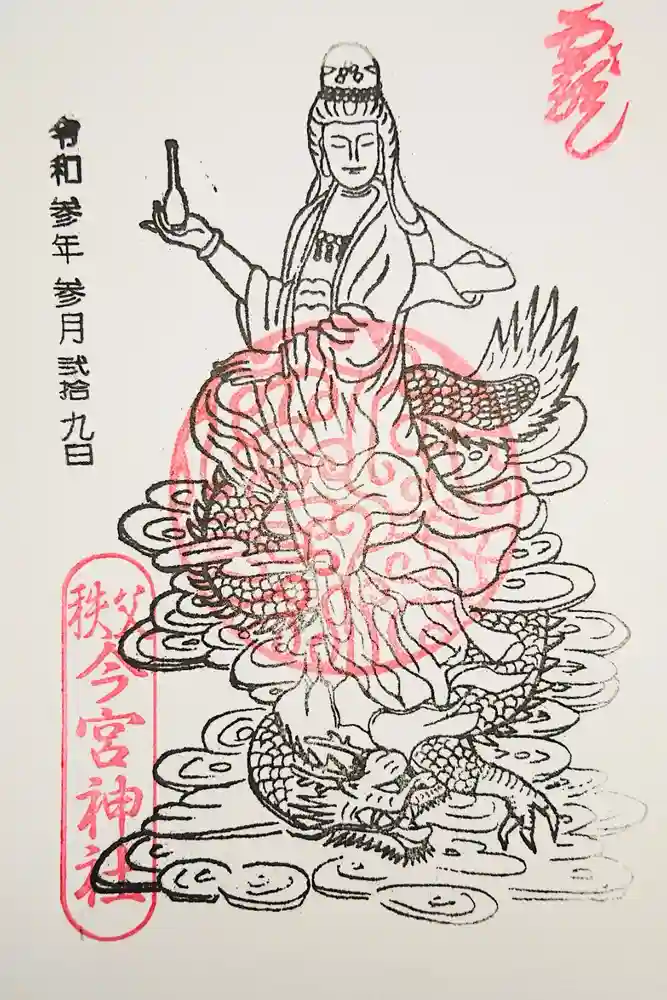 令和参年参月弐拾九日
秩父今宮神社